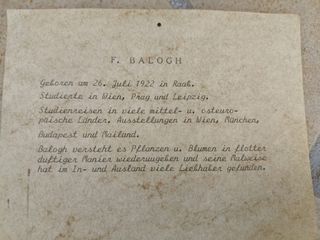 F. BALOGH
Geboren am 26. Juli 1922 in Raab.
Studierte in Wien, Prag und Leipzig.
Studienreisen in viele mittel- u. osteuro-
päische Länder. Ausstellungen in Wien, München,
Budapest und Mailand.
Balogh versteht es Pflanzen u. Blumen in flotter
duftiger Manier wiederzugeben und seine Malweise
hat im In- und Ausland viele Liebhaber gefunden.